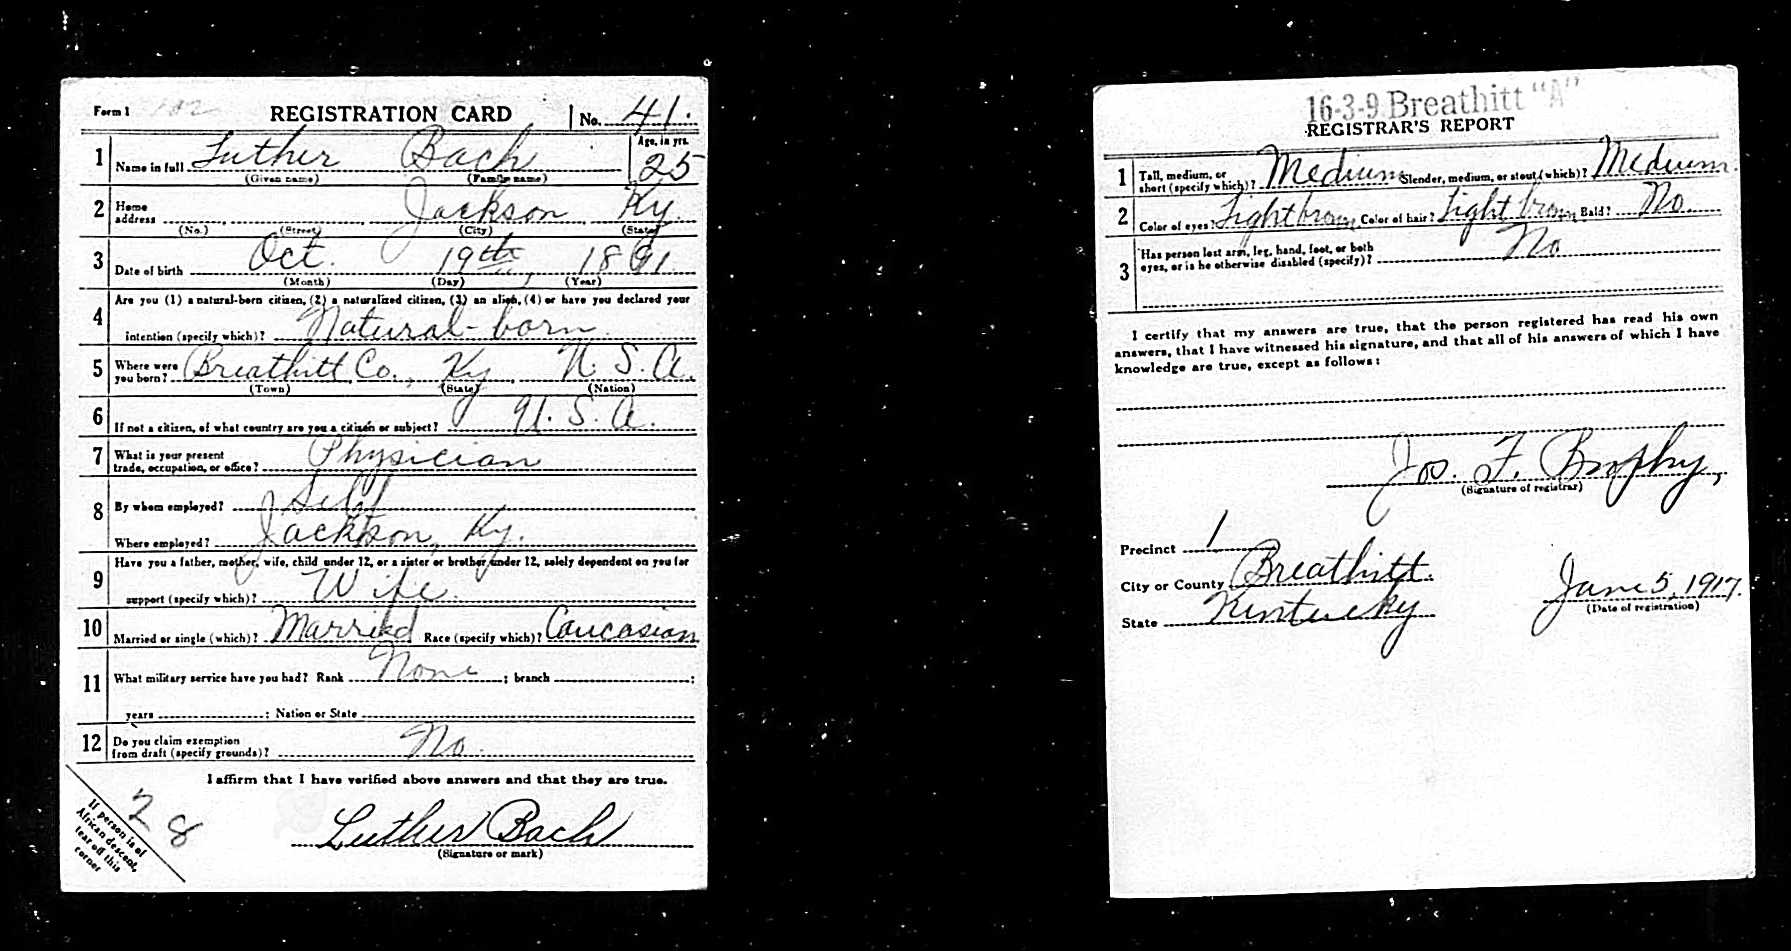 Form 1 102 REGISTRATION CARD No. 41.
1 Name in full Luther Bach Age, in yrs. 25
(Given name) (Family name)
2 Home address Jackson Ky.
(No.) (Street) (City) (State)
3 Date of birth Oct. 19th, 1891
(Month) (Day) (Year)
4 Are you (1) a natural-born citizen, (2) a naturalized citizen, (3) an alien, (4) or have you declared your
intention (specify which)? Natural-born
5 Where were you born? Breathitt Co., Ky U. S. A.
(Town) (State) (Nation)
6 If not a citizen, of what country are you a citizen or subject? U. S. A.
7 What is your present trade, occupation, or office? Physician
8 By whom employed? Self
Where employed? Jackson, Ky.
9 Have you a father, mother, wife, child under 12, or a sister or brother under 12, solely dependent on you for
support (specify which)? Wife.
10 Married or single (which)? Married Race (specify which)? Caucasian
11 What military service have you had? Rank None ; branch ;
years ; Nation or State
12 Do you claim exemption from draft (specify grounds)? No.
I affirm that I have verified above answers and that they are true.
Luther Bach
(Signature or mark)
If person is of
African descent,
tear off this
corner
28
16-3-9 Breathitt "A"
REGISTRAR'S REPORT
1 Tall, medium, or short (specify which)? Medium Slender, medium, or stout (which)? Medium.
2 Color of eyes? Light brown Color of hair? Light brown Bald? No.
3 Has person lost arm, leg, hand, foot, or both eyes, or is he otherwise disabled (specify)? No
I certify that my answers are true, that the person registered has read his own
answers, that I have witnessed his signature, and that all of his answers of which I have
knowledge are true, except as follows:
Jos. F. Brophy,
(Signature of registrar)
Precinct 1
City or County Breathitt.
State Kentucky
June 5, 1917.
(Date of registration)